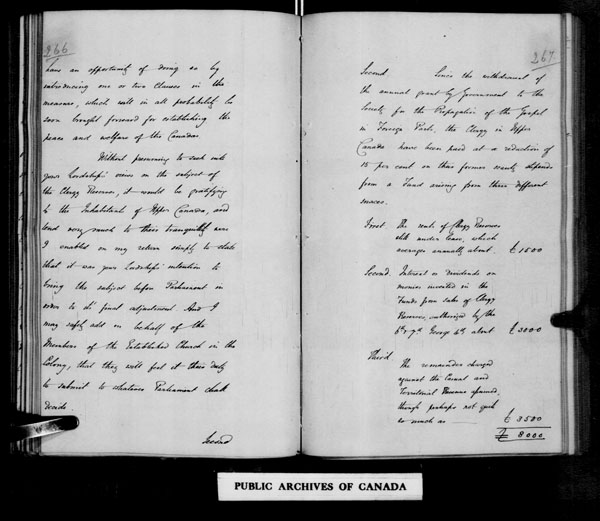 266
have an opportunity of doing so by
introducing one or two clauses in the
measure, which will in all probability be
soon brought forward for establishing the
peace and welfare of the Canadas
Without presuming to seek into
your Lordship's views on the subject of
the Clergy Reserves, it would be gratifying
to the Inhabitants of Upper Canada, and
tend very much to their tranquility were
I enabled on my return simply to state
that it was your Lordship's intention to
bring the subject before Parliament in
order to its final adjustment. And I
may safely add on behalf of the
Members of the Established Church in the
Colony, that they will feel it their duty
to submit to whatever Parliament shall
decide
Second
267
Second Since the withdrawal of
the annual grant by Government to the
Society for the Propagation of the Gospel
in Foreign Parts, the Clergy in Upper
Canada have been paid at a reduction of
15 per cent on their former scanty stipends
from a Fund arising from three different
sources.
First The rents of Clergy Reserves
still under lease, which
averages annually about £1500
Second. Interest or dividends on
monies invested in the
Funds from sales of Clergy
Reserves, authorized by the
6th & 7th George 4th about £3000
Third The remainder charged
against the Casual and
Territorial Revenue
though perhaps not quite
so much as £3500
£8000
PUBLIC ARCHIVES OF CANADA